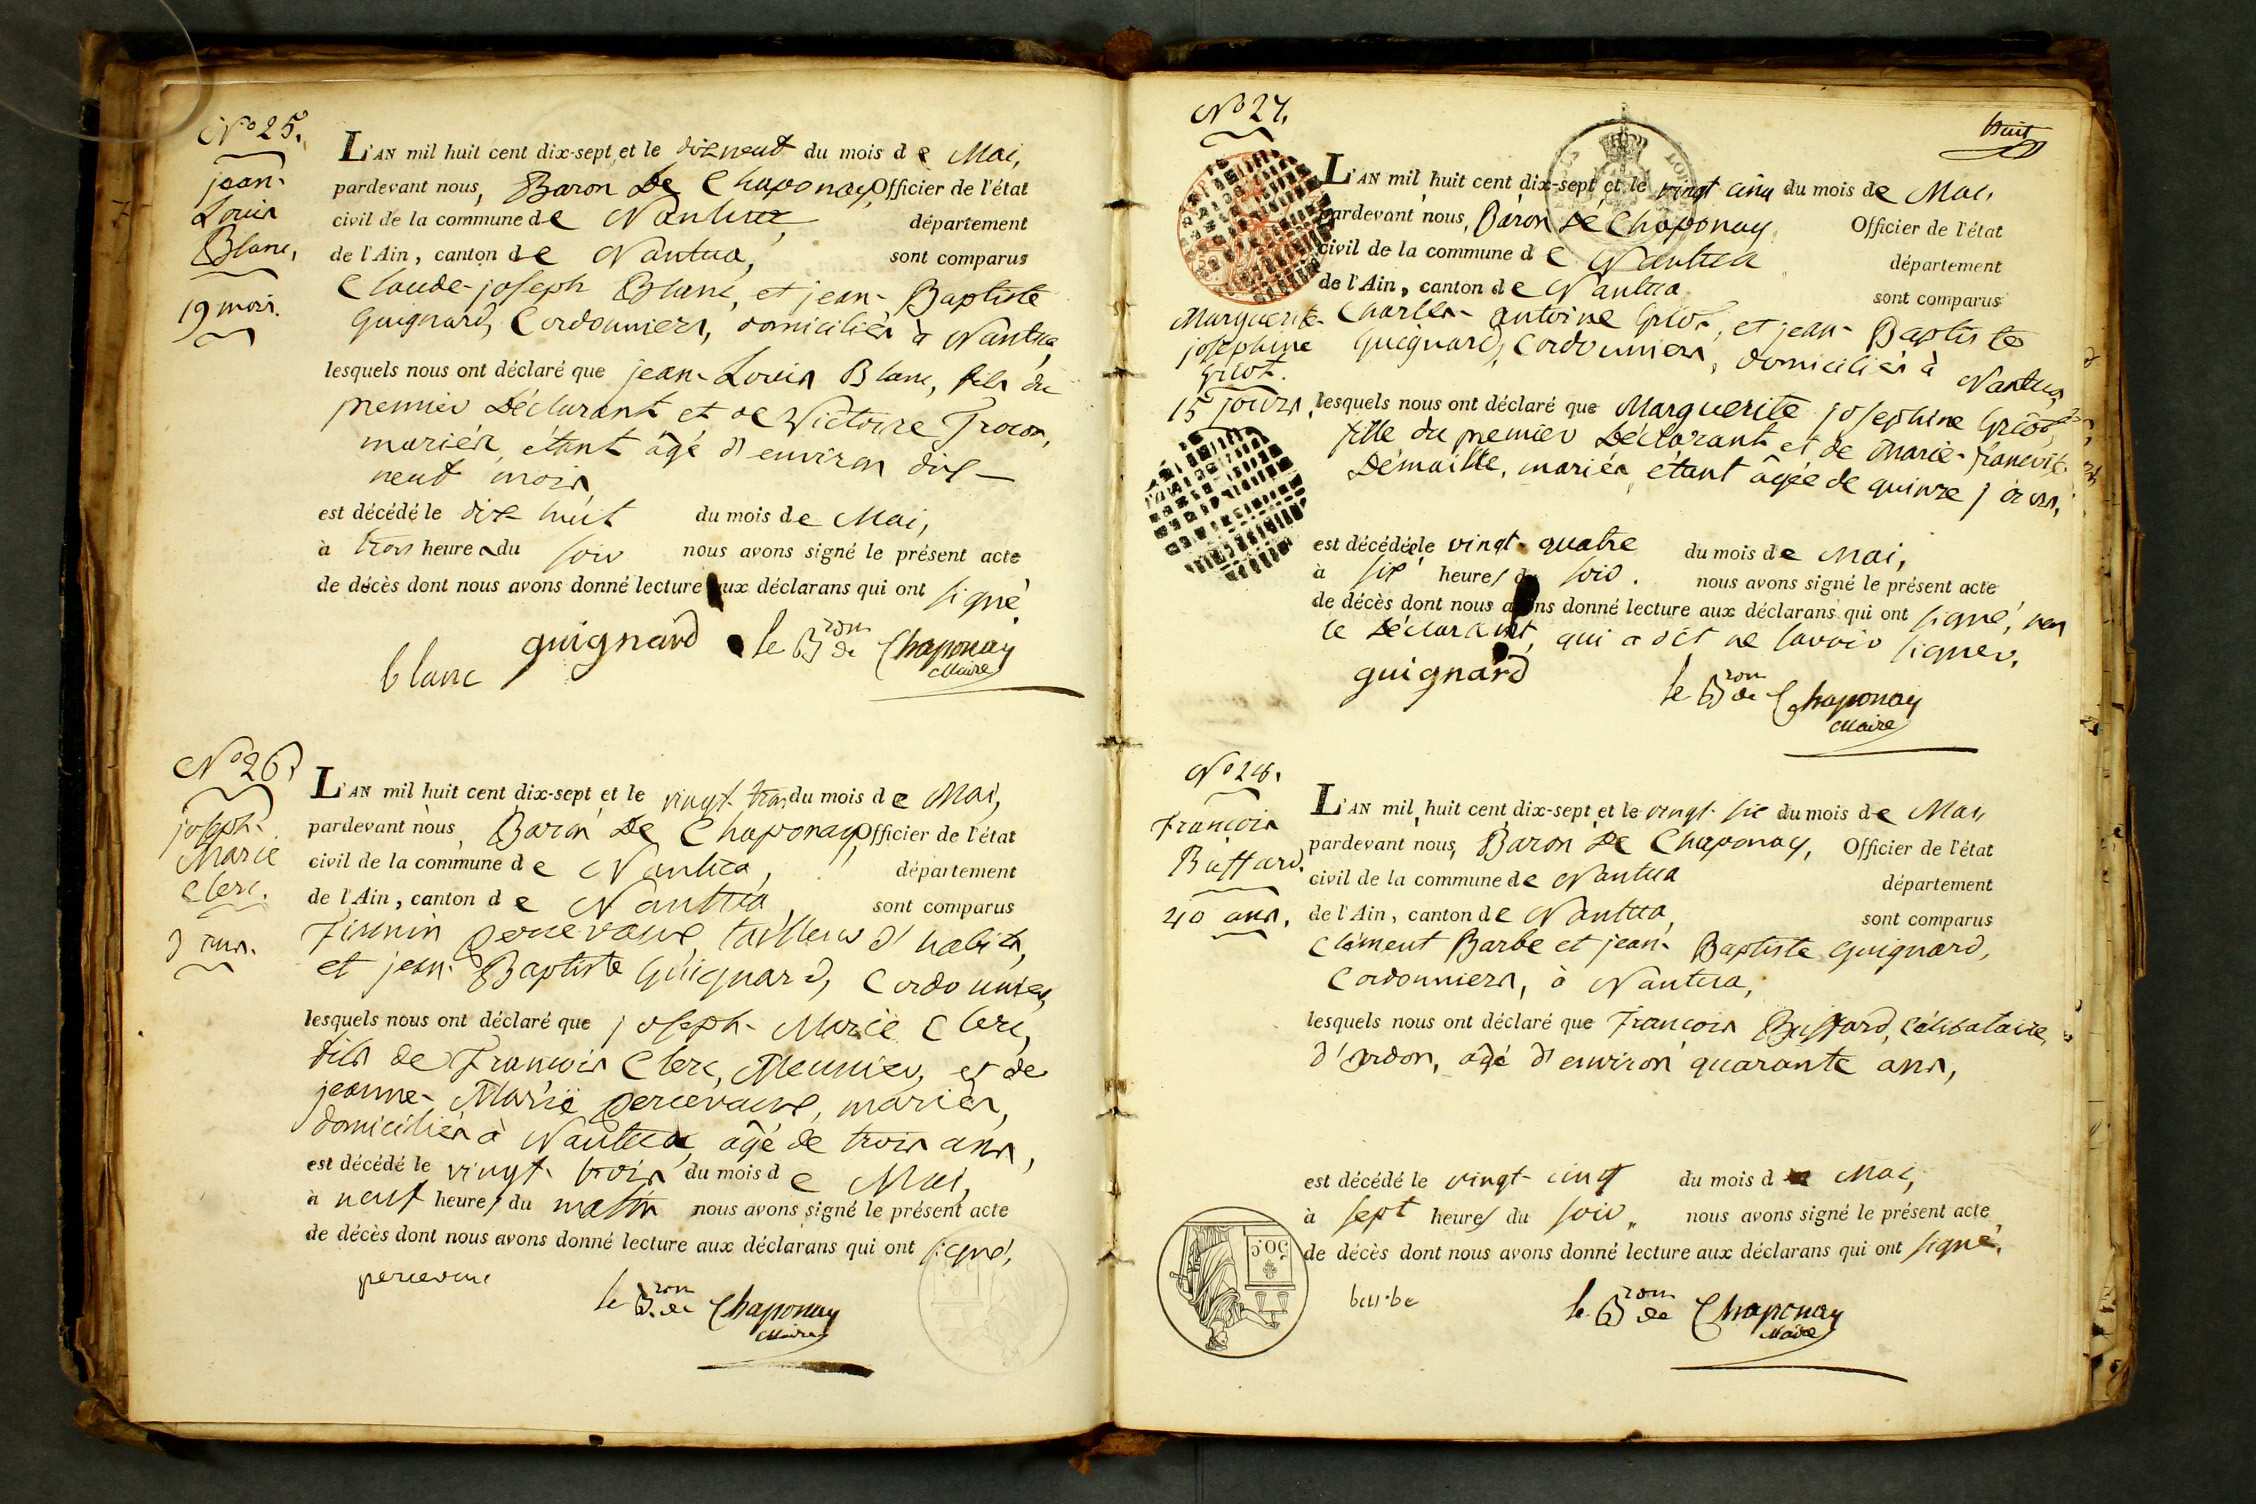 No 25.
jean-
Louis
Blanc,
19 mois.
L'AN mil huit cent dix-sept et le dix neuf du mois de Mai,
pardevant nous, Baron De Chaponay, Officier de l'état
civil de la commune de Nantua, département
de l'Ain, canton de Nantua, sont comparus
Claude-joseph Blanc, et jean-Baptiste
Guignard, Cordonniers, domiciliés à Nantua,
lesquels nous ont déclaré que jean-Louis Blanc, fils du
premier Déclarant et de Victoire
mariés, étant âgé d'environ dix-
neuf mois,
est décédé le dix huit du mois de Mai,
à trois heures du soir nous avons signé le présent acte
de décès dont nous avons donné lecture aux déclarans qui ont signé.
blanc guignard le Bron de Chaponay
Maire
No 26.
joseph-
Marie
Clerc.
3 ans.
L'AN mil huit cent dix-sept et le vingt-trois du mois de Mai,
pardevant nous, Baron De Chaponay, Officier de l'état
civil de la commune de Nantua, département
de l'Ain, canton de Nantua, sont comparus
Firmin Percevaux, tailleur d'habits,
et jean-Baptiste Guignard, Cordonnier,
lesquels nous ont déclaré que joseph-Marie Clerc,
fils de Francois Clerc, Meunier, et de
jeanne-Marie Percevaux, mariés,
domiciliés à Nantua, âgé de trois ans,
est décédé le vingt-trois du mois de Mai,
à neuf heures du matin nous avons signé le présent acte
de décès dont nous avons donné lecture aux déclarans qui ont signé,
le Bron de Chaponay
Maire
huit
No 27.
Marguerite-
josephine
15 jours,
L'AN mil huit cent dix-sept et le vingt cinq du mois de Mai,
pardevant nous, Baron De Chaponay, Officier de l'état
civil de la commune de Nantua département
de l'Ain, canton de Nantua sont comparus
Charles-antoine et jean-Baptiste
Guignard, Cordonniers, domiciliés à Nantua,
lesquels nous ont déclaré que Marguerite josephine
fille du premier Déclarant et de Marie-francoise
Démaille, mariés, étant âgée de quinze jours,
est décédée le vingt-quatre du mois de Mai,
à six heures du soir. nous avons signé le présent acte
de décès dont nous avons donné lecture aux déclarans qui ont signé, non
le Déclarant, qui a dit ne savoir signer.
guignard le Bron de Chaponay
Maire
No 28.
Francois
Buffard.
40 ans.
L'AN mil huit cent dix-sept et le vingt-six du mois de Mai,
pardevant nous, Baron De Chaponay, Officier de l'état
civil de la commune de Nantua département
de l'Ain, canton de Nantua, sont comparus
Clément Barbe et jean-Baptiste Guignard,
Cordonniers, à Nantua,
lesquels nous ont déclaré que Francois Buffard, Célibataire,
âgé d'environ quarante ans,
est décédé le vingt-cinq du mois de Mai,
à sept heures du soir, nous avons signé le présent acte
de décès dont nous avons donné lecture aux déclarans qui ont signé.
50 C
barbe le Bron de Chaponay
Maire